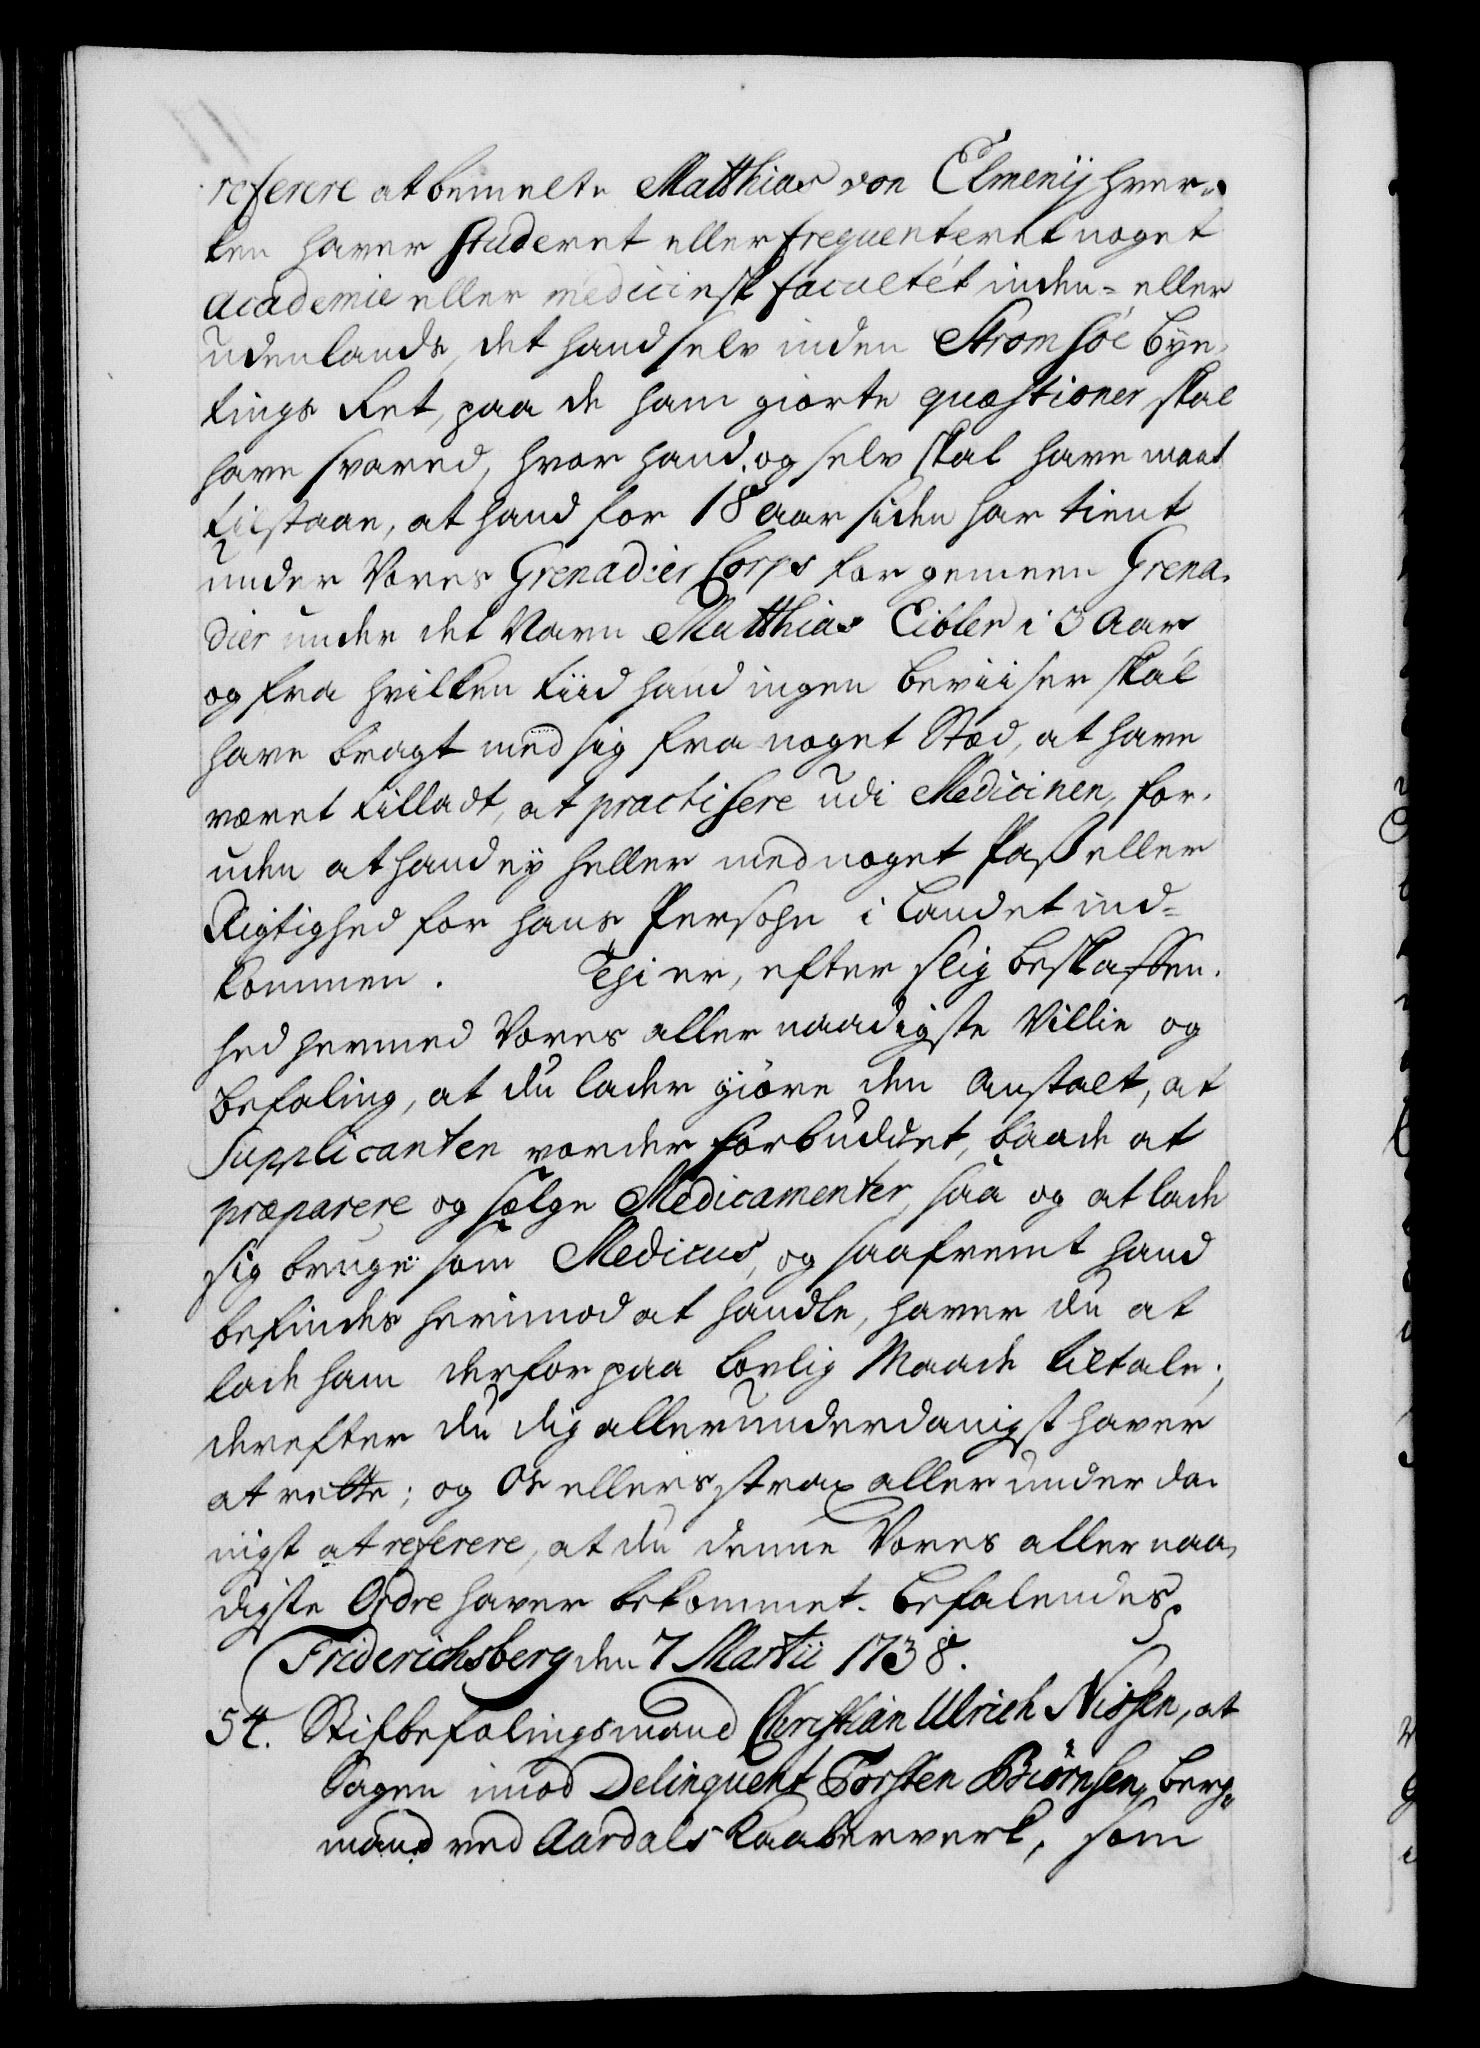 referere at bemelte Matthias von Elmenij hver¬
ken haver studeret eller frequenteret noget
Academie eller medicinsk facultét inden- eller
udenlands, det hand selv inden Strømsöe Bye¬
tings Ret, paa de ham giorte quæstioner skal
have svared, hvor hand og selv skal have maat
tilstaae, at hand for 18 Aar siden har tient
under Vores Grenadier Corps for gemeen Grena¬
dier under det Navn Matthias Eibler i 3 Aar,
og fra hvilken Tiid hand ingen Beviiser skal
have bragt med sig fra noget Stæd, at have
været tilladt, at practisere udi Medicinen, for¬
uden at hand ey heller med noget Pass eller
Rigtighed for hans Persohn i Landet ind-
kommen. Thi er, efter slig Beskaffen¬
hed hermed Vores allernaadigste Villie og
Befaling, at du lader giöre den Anstalt, at
Supplicanten vorder forbuddet, baade at
præparere og sælge Medicamenter, saa og at lade
sig bruge som Medicus, og saafremt hand
befindes herimod at handle, haver du at
lade ham derfor paa lovlig Maade tiltale;
derefter du dig allerunderdanigst haver
at rette; og Os ellers strax allerunderda¬
nigst at referere, at du denne Vores allernaa¬
digste Ordre haver bekommet. Befalendes
Friderichsberg den 7 Martii 1738.
54. Stiftbefalingsmand Christian Ulrich Nissen, at
Sagen imod Delinquent Torsten Biörnsen, Berg¬
mand ved Aardals Kaaberverk, som